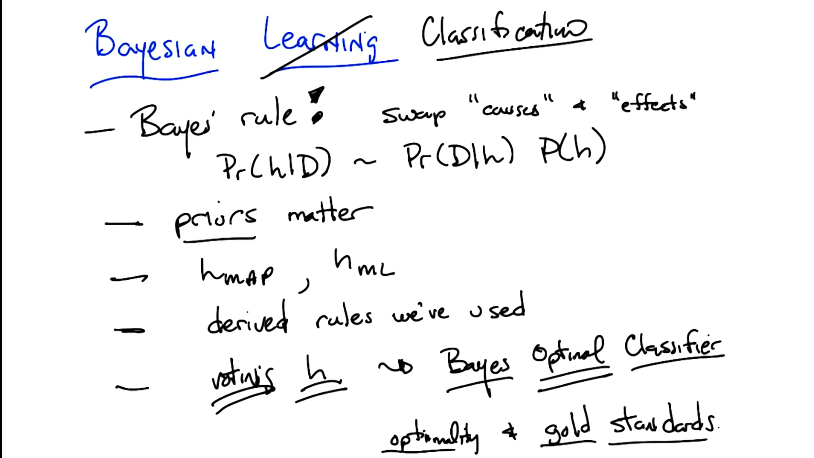 Bayesian Learning Classification
— Bayes' rule! swap "causes" & "effects"
Pr(h|D) ~ Pr(D|h) P(h)
— priors matter
— hMAP, hML
— derived rules we've used
— voting h ~> Bayes Optimal Classifier
optimality & gold standards.